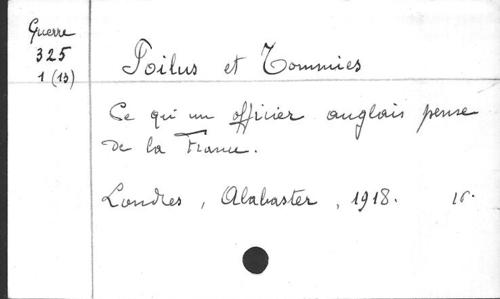 Guerre
325
1 (13)
Poilus et Tommies
Ce qu'un officier anglais pense
de la France.
Londres, Alabaster, 1918.